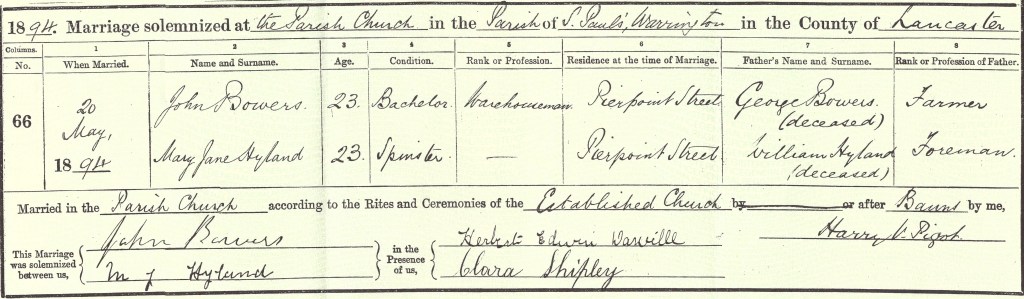 1894. Marriage solemnized at the Parish Church in the Parish of S. Paul's, Warrington in the County of Lancaster
Columns. 1 2 3 4 5 6 7 8
No. When Married. Name and Surname. Age. Condition. Rank or Profession. Residence at the time of Marriage. Father's Name and Surname. Rank or Profession of Father.
20 John Bowers. 23. Bachelor. Warehouseman Pierpoint Street George Bowers. Farmer
66 May, (deceased)
1894 Mary Jane Hyland 23. Spinster. — Pierpoint Street. William Hyland Foreman.
(deceased)
Married in the Parish Church according to the Rites and Ceremonies of the Established Church by or after Banns by me,
This Marriage was solemnized between us, John Bowers in the Presence of us, Herbert Edwin Harry V. Pigot.
M J Hylund Clara Shipley